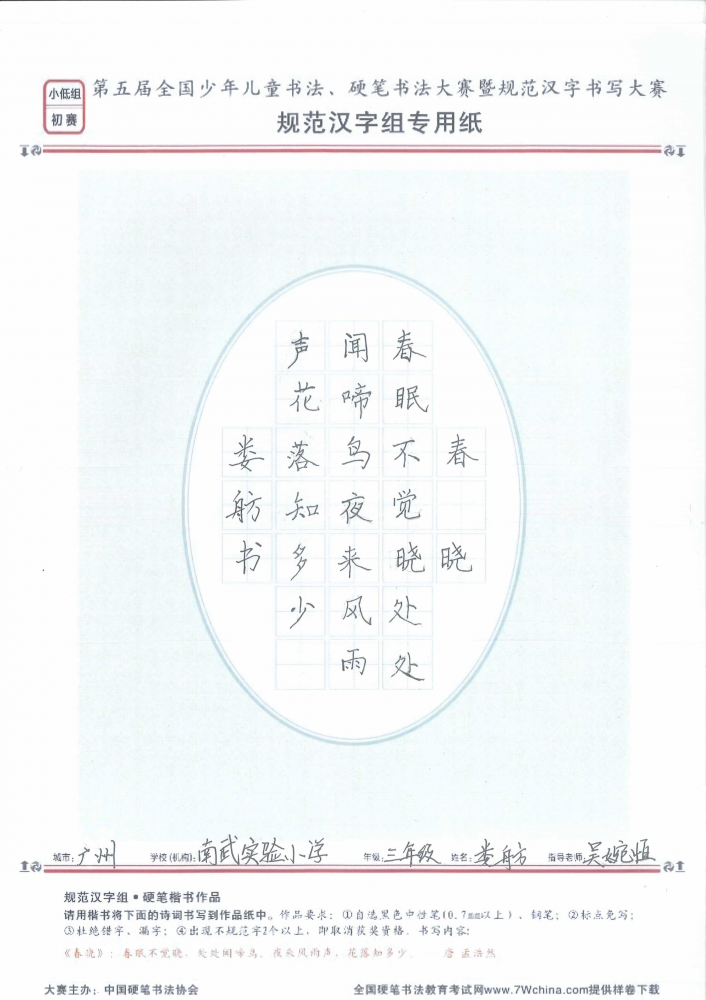 小低组
初赛
第五届全国少年儿童书法、硬笔书法大赛暨规范汉字书写大赛
规范汉字组专用纸
春晓
春眠不觉晓处处
闻啼鸟夜来风雨
声花落知多少
娄舫书
城市：广州 学校(机构)：南武实验小学 年级：三年级 姓名：娄舫 指导老师：吴婉恒
规范汉字组·硬笔楷书作品
请用楷书将下面的诗词书写到作品纸中。作品要求：①自选黑色中性笔(0.7mm以上)、钢笔；②标点免写；
③杜绝错字、漏字；④出现不规范字2个以上，即取消获奖资格。书写内容：
《春晓》：春眠不觉晓，处处闻啼鸟。夜来风雨声，花落知多少。——唐 孟浩然
大赛主办：中国硬笔书法协会
全国硬笔书法教育考试网www.7Wchina.com提供样卷下载